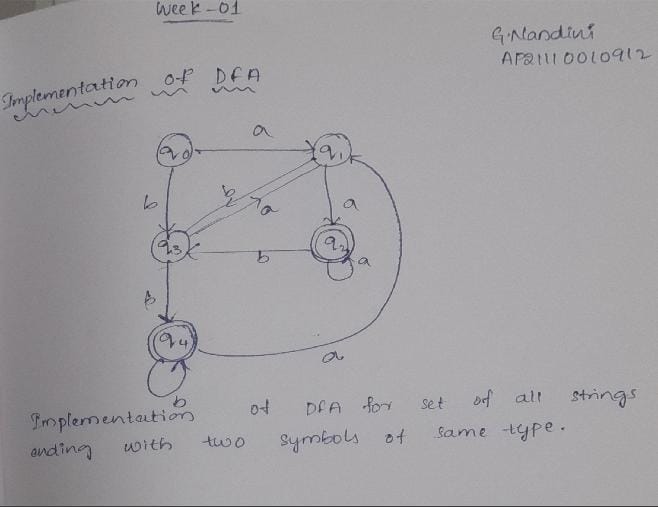 Week-01
G.Nandini
AP21110010912
Implementation of DFA
a
q0
q1
b
b
a
a
q3
q2
b
a
b
q4
a
b
Implementation of DFA for set of all strings
ending with two symbols of same type.